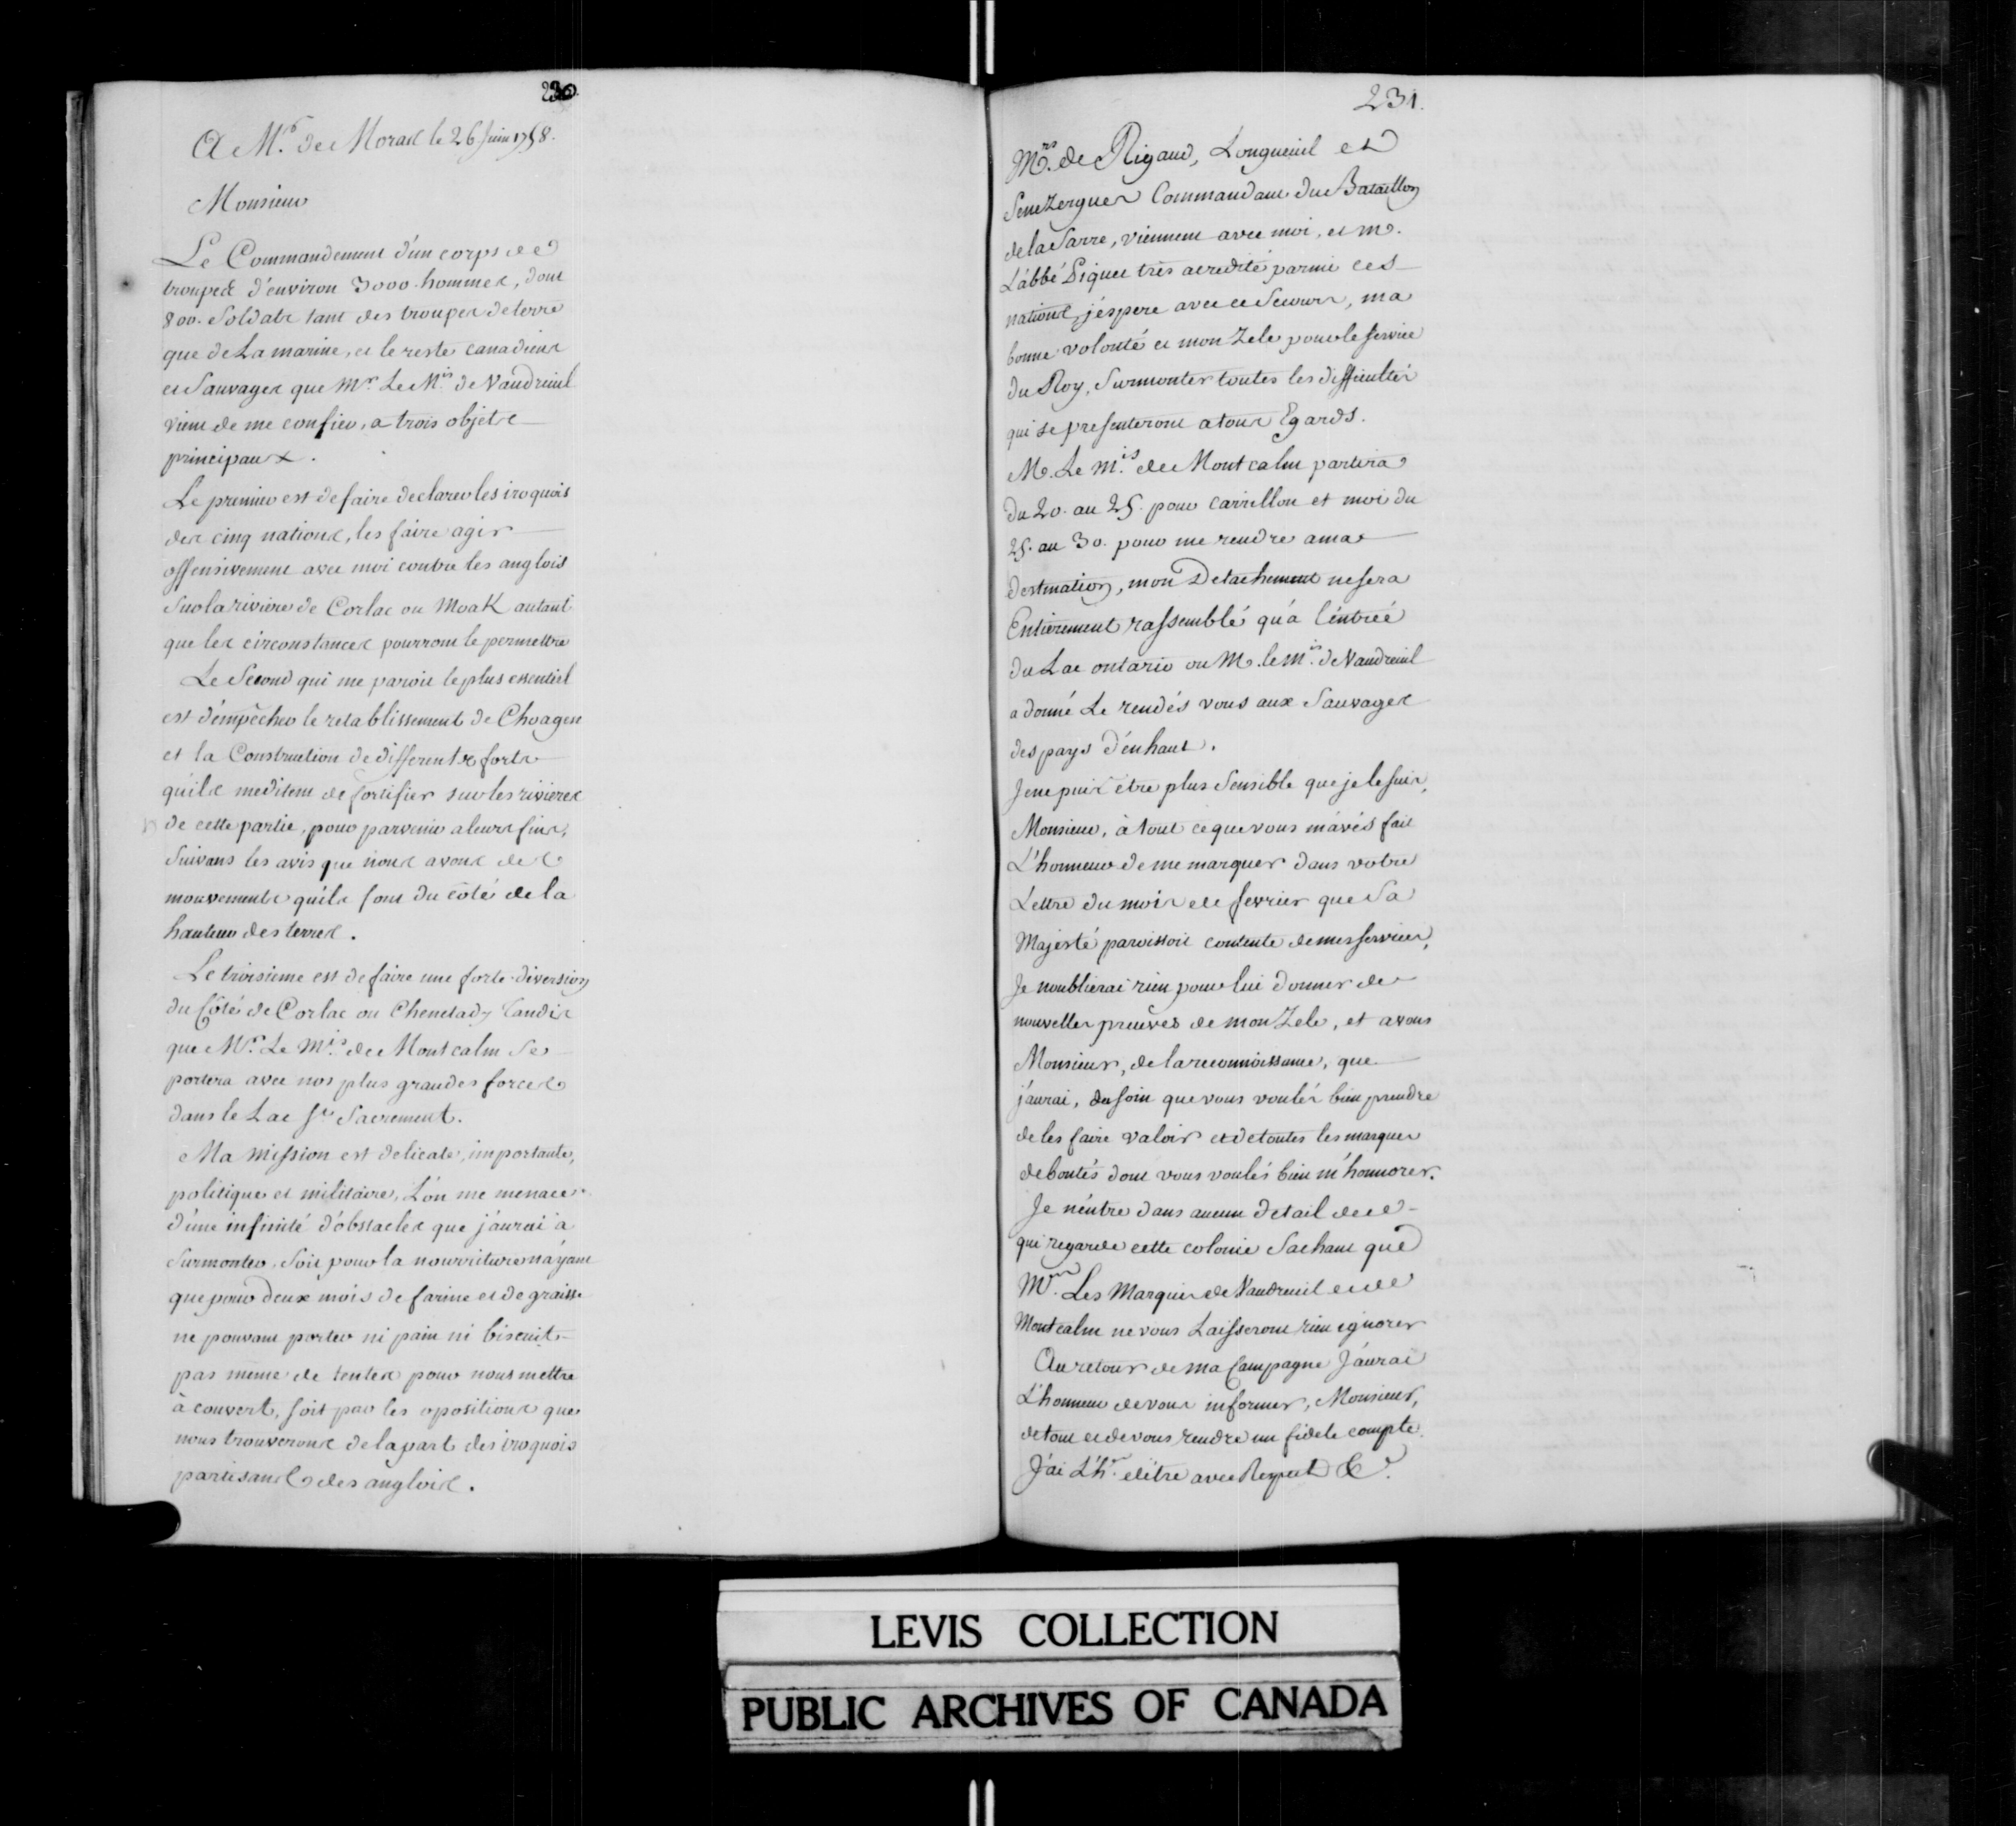 230.
A Mr. de Moras le 26 Juin 1758.
Monsieur
Le Commandement d'un corps de
troupes d'environ 3000 hommes, dont
800. Soldats tant des troupes de terre
que de La marine, et le reste canadiens
et Sauvages que Mr. Le Mis. de Vaudreuil
vient de me confier, a trois objets
principaux.
Le premier est de faire declarer les iroquois
des cinq nations, les faire agir
offensivement avec moi contre les anglois
Sur la riviere de Corlac ou Moak autant
que les circonstances pourront le permettre
Le Second qui me paroit le plus essentiel
est d'empêcher le retablissement de Choagen
et la Construction de differents forts
qu'ils meditent de fortifier sur les rivieres
de cette partie, pour parvenir a leurs fins,
Suivans les avis que nous avons des
mouvements qu'ils font du côté de la
hauteur des terres.
Le troisieme est de faire une forte diversion
du Côté de Corlac ou Chenetady tandis
que Mr. Le Mis. de Montcalm se
portera avec nos plus grandes forces
dans le Lac St Sacrement.
Ma Mission est delicate, importante,
politique et militaire, L'on me menace
d'une infinité d'obstacles que j'aurai a
Surmonter, Soit pour la nourriture n'ayant
que pour deux mois de farine et de graisse
ne pouvant porter ni pain ni biscuit
pas même de tentes pour nous mettre
à couvert, soit par les opositions que
nous trouverons de la part des iroquois
partisans des anglois.
231.
Mrs. de Rigaud, Longueuil et
Senezergues Commandant du Bataillon
de la Sarre, viennent avec moi, et m.
L'abbé Piquet très acredité parmi ces
nations, j'éspere avec ce Secours, ma
bonne volonté et mon Zele pour le service
du Roy, Surmonter toutes les difficultés
qui se presenteront a tous Egards.
M. Le Mis. de Montcalm partira
du 20. au 25. pour carrillon et moi du
25. au 30. pour me rendre a ma
destination, mon Detachement ne sera
Entierement rassemblé qu'a l'éntrée
du Lac ontario ou M. le Mis. de Vaudreuil
a donné Le rendés vous aux Sauvages
des pays d'én haut.
Je ne puis être plus Sensible que je le suis,
Monsieur, à tout ce que vous m'avés fait
L'honneur de me marquer dans votre
Lettre du mois de fevrier que Sa
Majesté paroissoit contente de mes services,
Je noublierai rien pour lui donner de
nouvelles preuves de mon Zele, et a vous
Monsieur, de la reconnoissance, que
j'aurai, du soin que vous voulés bien prendre
de les faire valoir et de toutes les marques
de bontés dont vous voulés bien m'honnorer.
Je n'éntre dans aucun detail de ce
qui regarde cette colonie Sachant que
Mrs. Les Marquis de Vaudreuil et de
Montcalm ne vous Laisseront rien ignorer
Au retour de ma Campagne J'aurai
L'honneur de vous informer, Monsieur,
de tout et de vous rendre un fidele compte.
J'ai L'hr. d'être avec Respect &c.
LEVIS COLLECTION
PUBLIC ARCHIVES OF CANADA